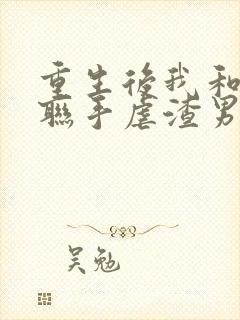 重生後我和
聯手虐渣男
吴勉